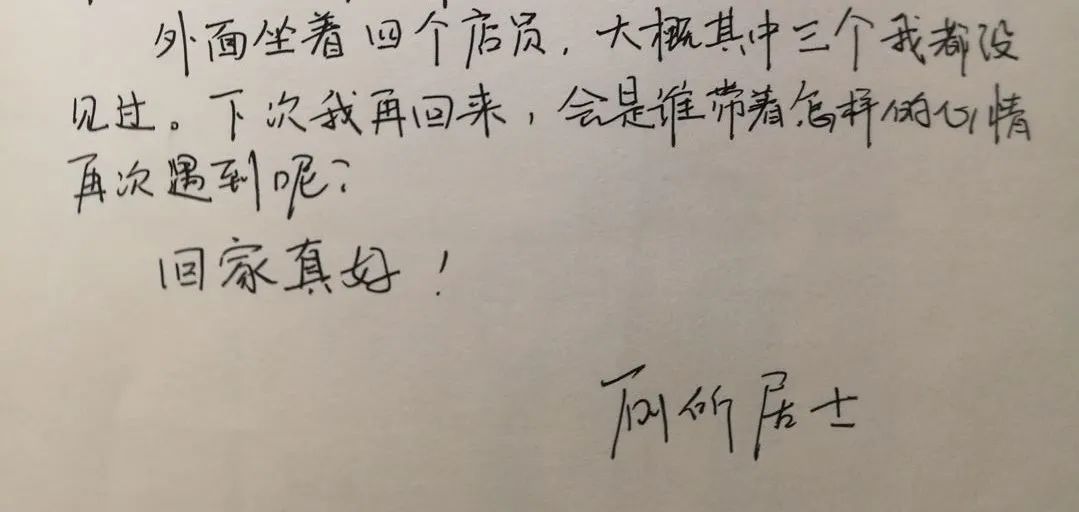 外面坐着四个店员，大概其中三个我都没
见过。下次我再回来，会是谁带着怎样的心情
再次遇到呢？
回家真好！
厕所居士